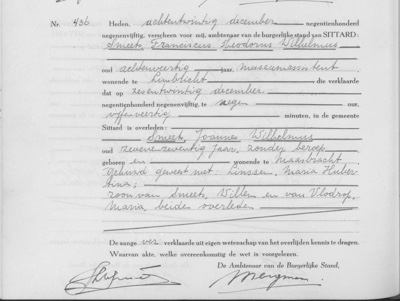 Nr. 436 Heden, achtentwintig december negentienhonderd
negenenvijftig, verscheen voor mij, ambtenaar van de burgerlijke stand van SITTARD:
Smeets, Franciscus Theodorus Wilhelmus
oud achtenveertig jaar, museumassistent
wonende te Limbricht die verklaarde
dat op zesentwintig december
negentienhonderd negenenvijftig, te negen uur,
vijfenveertig minuten, in de gemeente
Sittard is overleden:
Smeets, Joannes Wilhelmus
oud zevenenzeventig jaar, zonder beroep
geboren en wonende te Maasbracht
gehuwd geweest met: Linssen, Maria Huber-
tina;
zoon van Smeets, Willem en van Vlodrop,
Maria, beiden overleden
De aangever verklaarde uit eigen wetenschap van het overlijden kennis te dragen.
Waarvan akte, welke overeenkomstig de wet is voorgelezen.
De Ambtenaar van de Burgerlijke Stand,